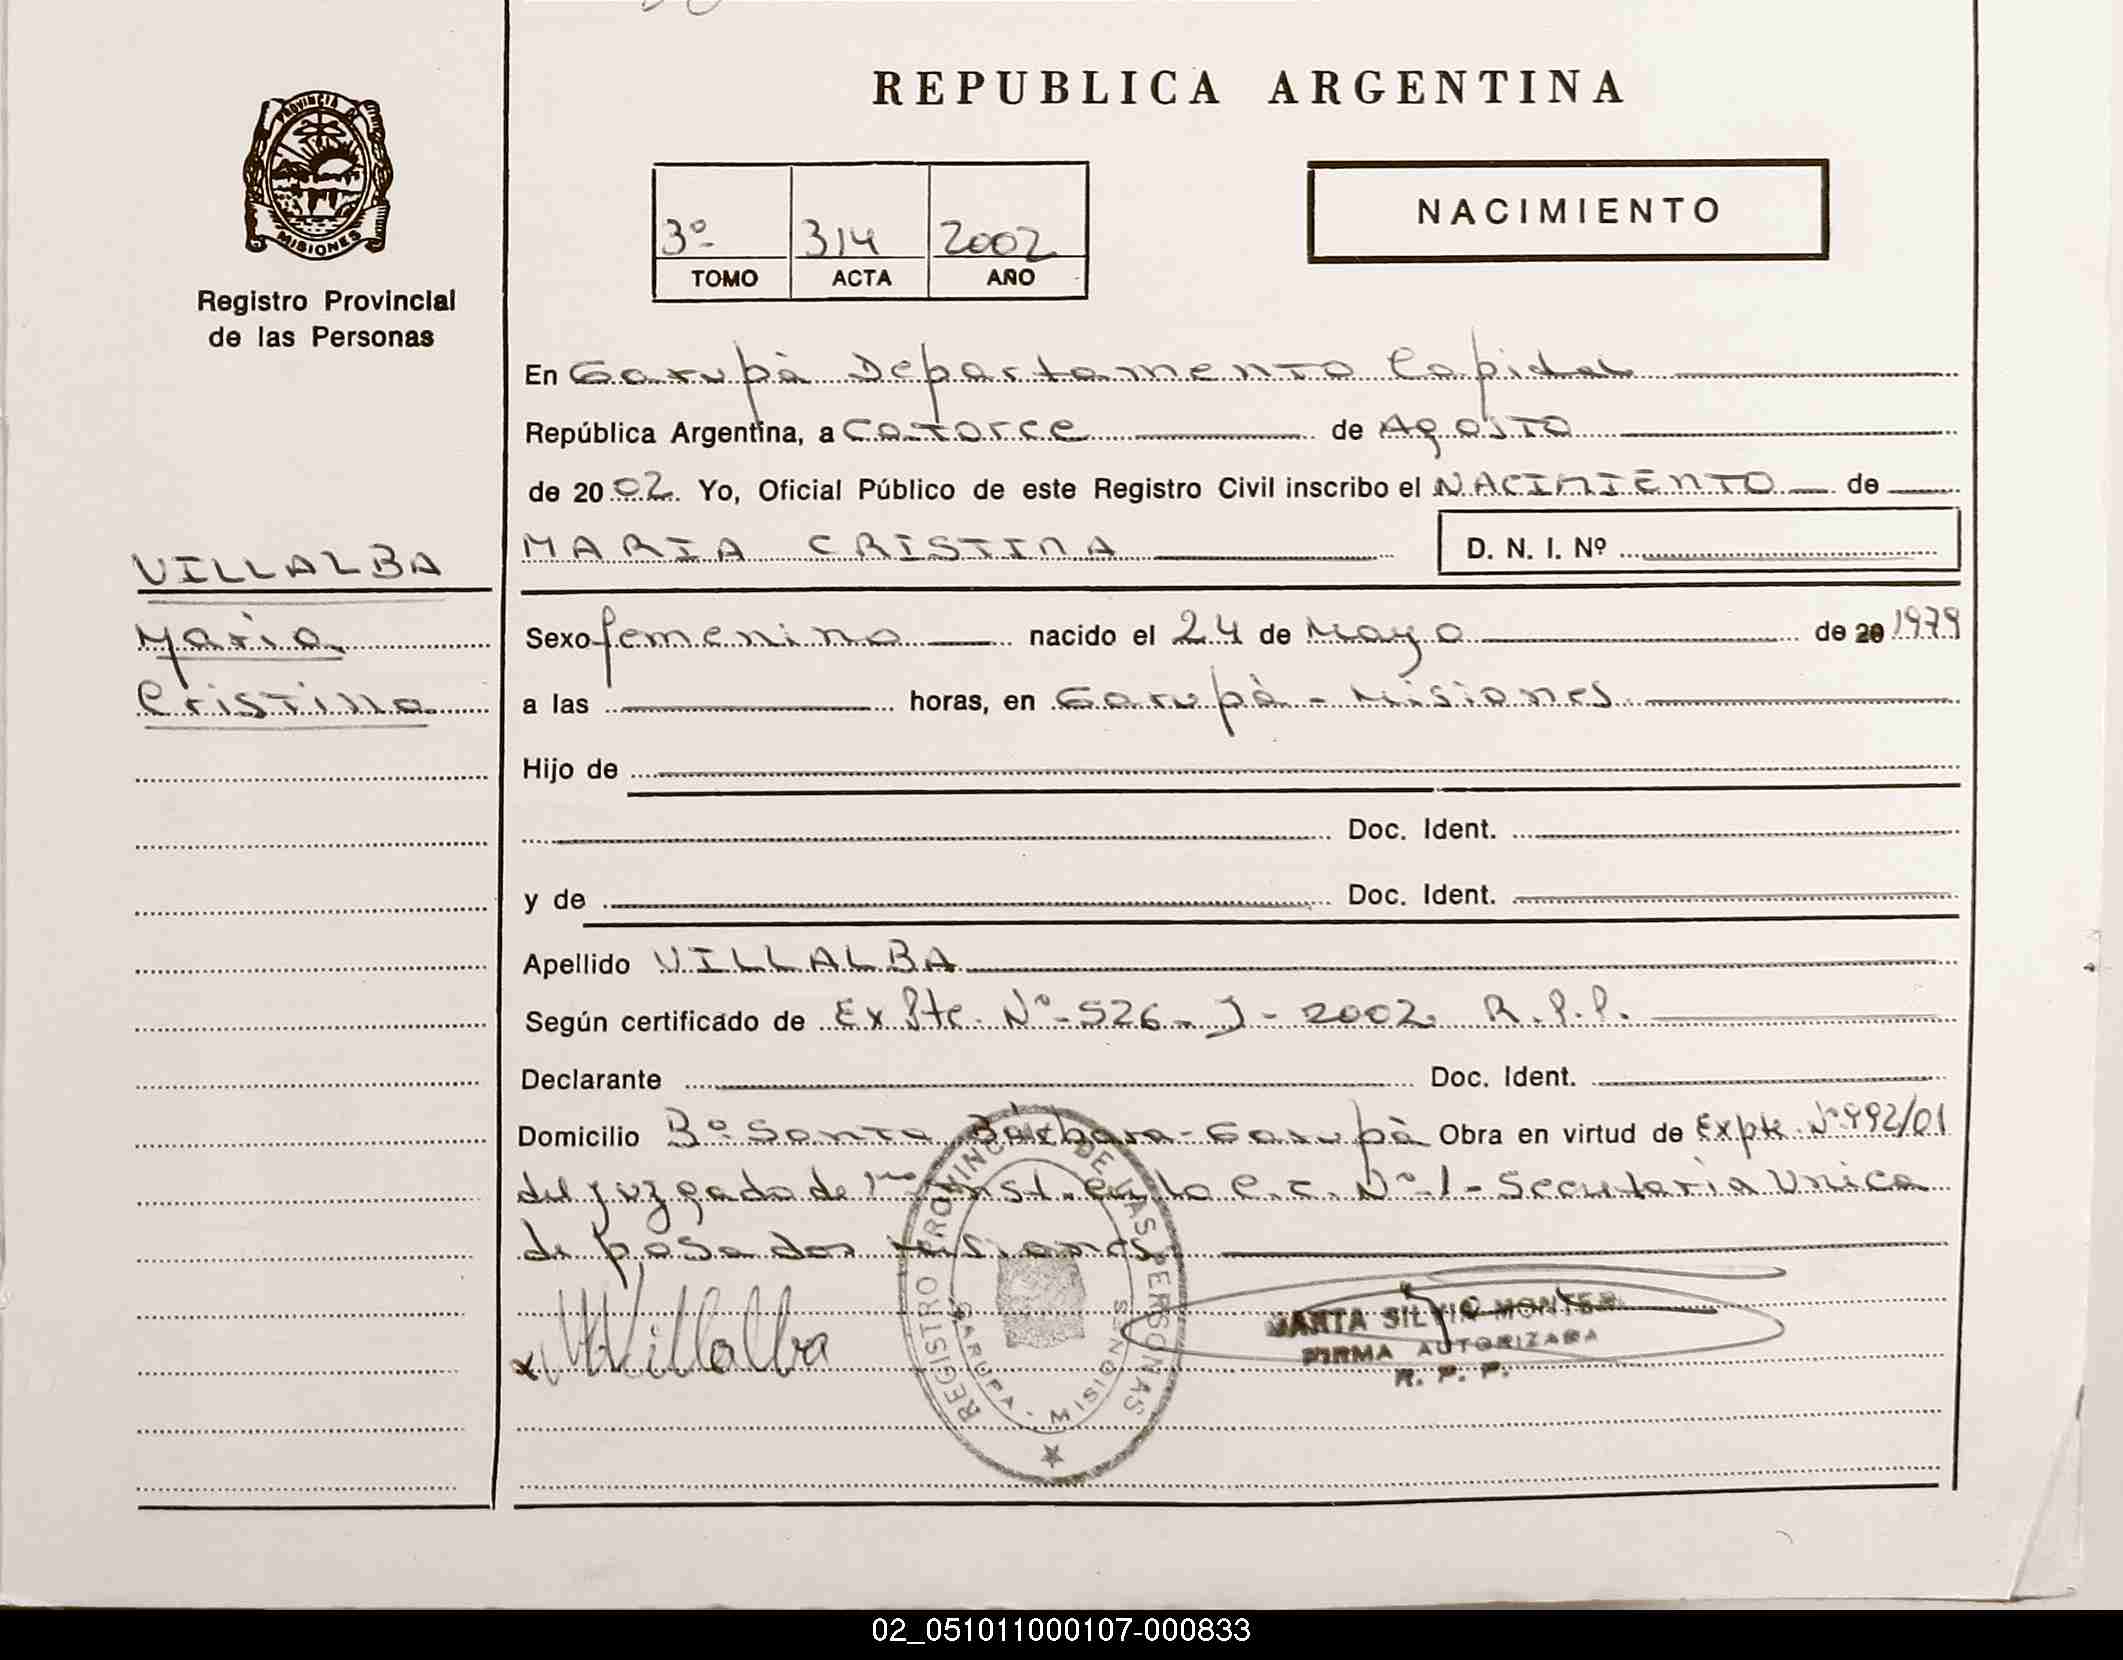 REPUBLICA ARGENTINA
PROVINCIA DE
MISIONES
Registro Provincial
de las Personas
3º 314 2002
TOMO ACTA AÑO
NACIMIENTO
En Garupà Departamento Capital
República Argentina, a Catorce de Agosto
de 2002. Yo, Oficial Público de este Registro Civil inscribo el NACIMIENTO de
MARIA CRISTINA D. N. I. Nº
VILLALBA
Maria
Cristina
Sexo femenino nacido el 24 de Mayo de 20 1979
a las horas, en Garupà - Misiones
Hijo de
Doc. Ident.
y de Doc. Ident.
Apellido VILLALBA
Según certificado de Expte. Nº 526-J-2002 R.P.P.
Declarante Doc. Ident.
Domicilio Bº Santa Bárbara - Garupà Obra en virtud de Expte. Nº 992/01
del juzgado de 1ra Inst. en lo C.C. Nº 1 - Secretaria Unica
de posadas Misiones
x MVillalba
REGISTRO PROVINCIAL DE LAS PERSONAS
GARUPA - MISIONES
MARTA SILVIA MONTES
FIRMA AUTORIZADA
R. P. P.
02_051011000107-000833